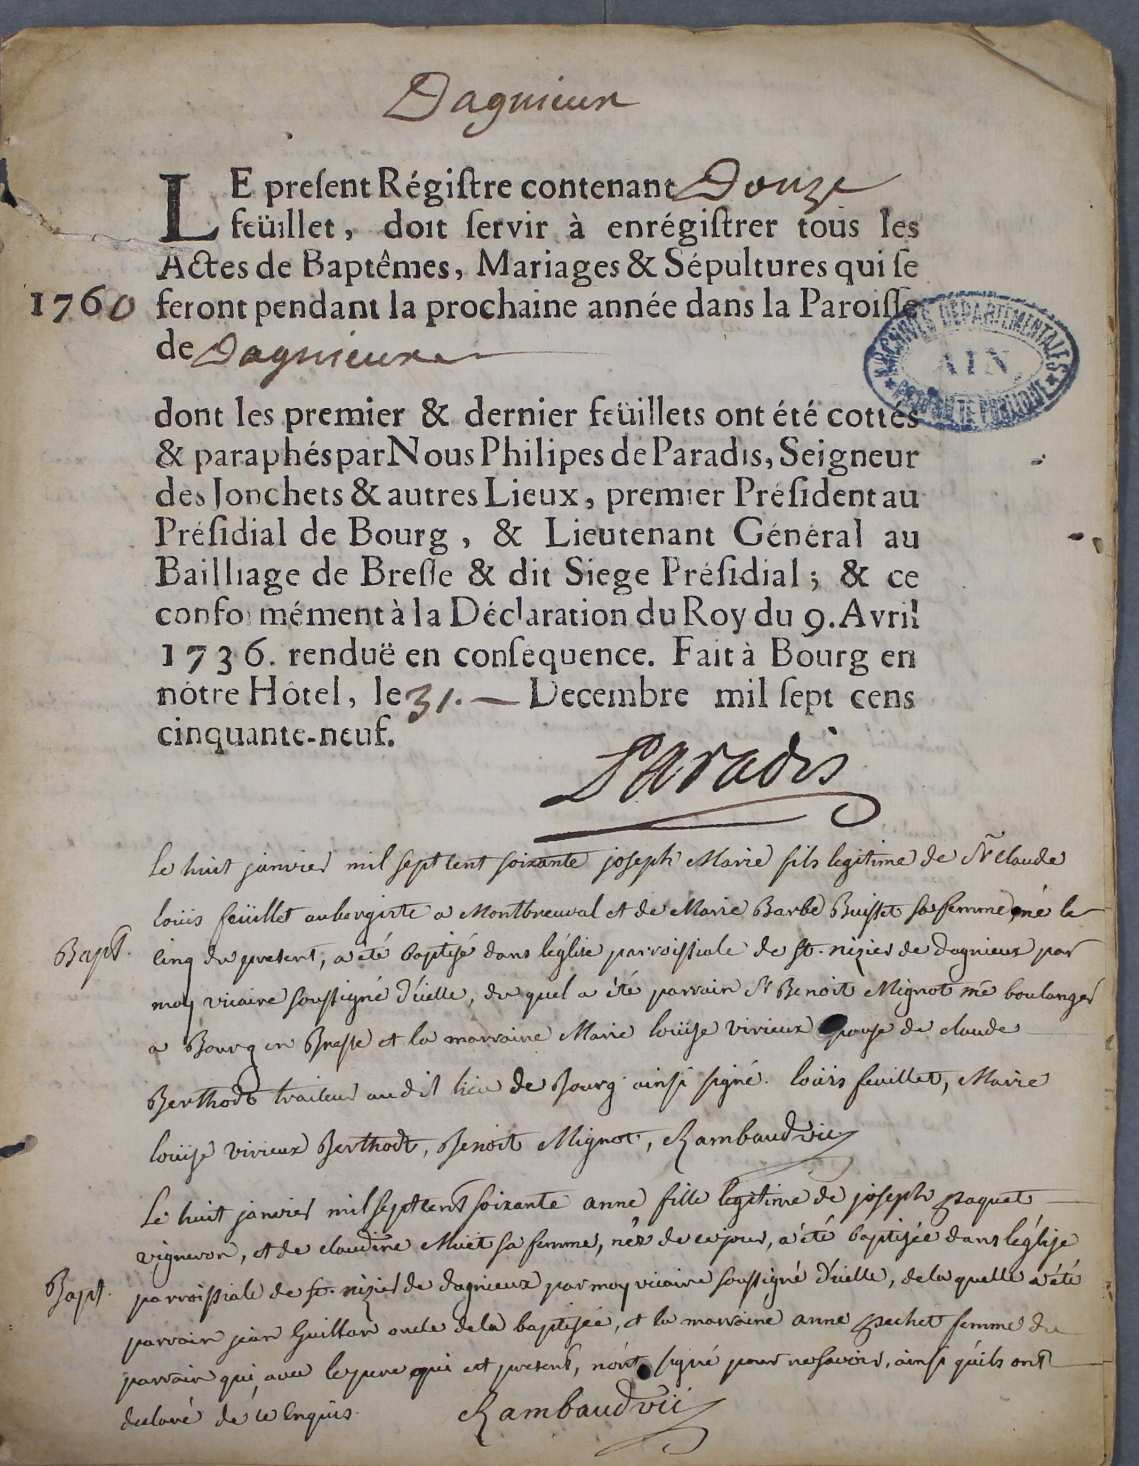 Dagnieux
LE preſent Régiſtre contenant Douze
feüillet, doit ſervir à enrégiſtrer tous les
Actes de Baptêmes, Mariages & Sépultures qui ſe
1760 feront pendant la prochaine année dans la Paroiſſe
de Dagnieux
ARCHIVES DEPARTEMENTALES
AIN
dont les premier & dernier feüillets ont été cottés
& paraphés par Nous Philipes de Paradis, Seigneur
des Jonchets & autres Lieux, premier Préſident au
Préſidial de Bourg, & Lieutenant Général au
Bailliage de Breſſe & dit Siege Préſidial; & ce
conformément à la Déclaration du Roy du 9. Avril
1736. renduë en conſéquence. Fait à Bourg en
nôtre Hôtel, le 31. Decembre mil ſept cens
cinquante-neuf.
Paradis
Le huit janvier mil sept cent soixante joseph Marie fils legitime de Sr claude
loüis feüillet aubergiste a Montbreuval et de Marie Barbe Buisset sa femme né le
Bapt. cinq du present, a été baptisé dans l'église parroissiale de St. nizier de dagnieux par
moy vicaire soussigné d'icelle, du quel a été parrain Sr Benoit Mignot me boulanger
a Bourg en Bresse et la marraine Marie loüise vivieux epouse de claude
Berthodt traiteur au dit lieu de Bourg ainsi signé. loüis feuillet, Marie
loüise vivieux Berthodt, Benoit Mignot, Rambaud vic
Le huit janvier mil sept cent soixante anne fille legitime de joseph paquet
vigneron, et de claudine Muet sa femme, née de ce jour, a été baptisée dans l'église
Bapt. parroissiale de St. nizier de dagnieux par moy vicaire soussigné d'icelle, de la quelle a été
parrain jean Guillan oncle de la baptisée, et la marraine anne pechet femme du
parrain qui, avec le pere qui est present, n'ont signé pour ne savoir, ainsi qu'ils ont
declaré de ce enquis. Rambaud vic